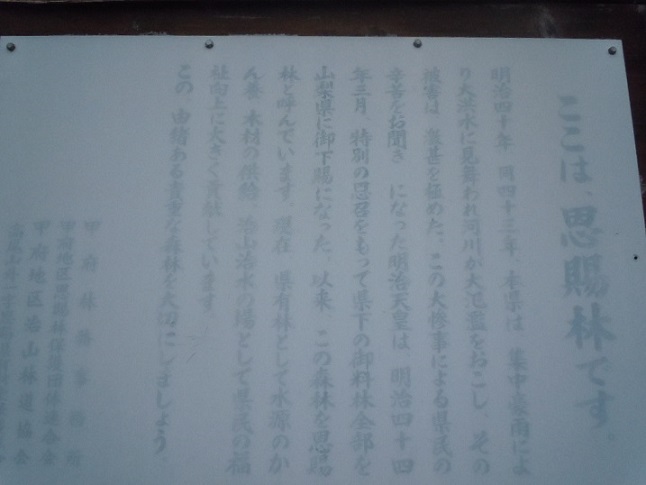 ここは、恩賜林です。
明治四十年、同四十三年、本県は、集中豪雨によ
り大洪水に見舞われ河川が大氾濫をおこし、その
被害は、激甚を極めた。この大惨事による県民の
辛苦をお聞きになった明治天皇は、明治四十四
年三月、特別の思召をもって県下の御料林全部を
山梨県に御下賜になった。以来、この森林を恩賜
林と呼んでいます。現在、県有林として水源のか
ん養、木材の供給、治山治水の場として県民の福
祉向上に大きく貢献しています。
この、由緒ある貴重な森林を大切にしましょう。
甲府林務事務所
甲府地区恩賜林保護団体連合会
甲府地区治山林道協会